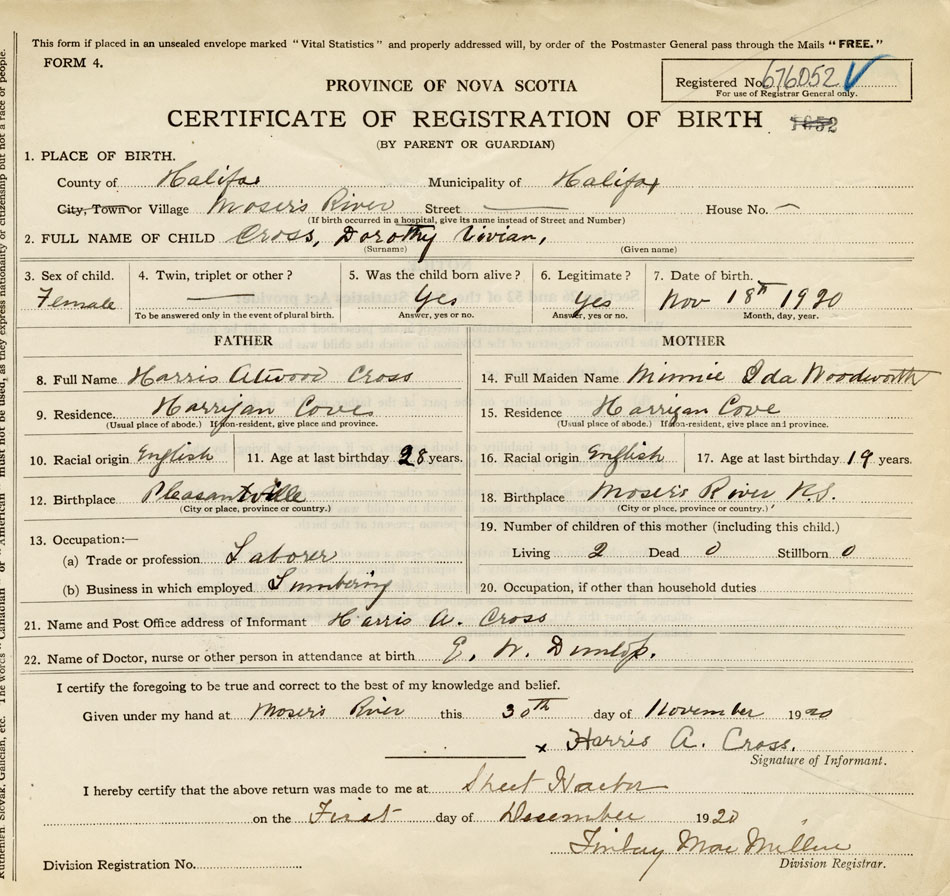 This form if placed in an unsealed envelope marked "Vital Statistics" and properly addressed will, by order of the Postmaster General pass through the Mails "FREE."
FORM 4.
Registered No. 676052
For use of Registrar General only.
PROVINCE OF NOVA SCOTIA
CERTIFICATE OF REGISTRATION OF BIRTH 1652
(BY PARENT OR GUARDIAN)
1. PLACE OF BIRTH.
County of Halifax Municipality of Halifax
City, Town or Village Moser's River Street — House No. —
(If birth occurred in a hospital, give its name instead of Street and Number)
2. FULL NAME OF CHILD Cross, Dorothy Vivian,
(Surname) (Given name)
3. Sex of child. 4. Twin, triplet or other? 5. Was the child born alive? 6. Legitimate? 7. Date of birth.
Female — Yes Yes Nov 18th 1920
To be answered only in the event of plural birth. Answer, yes or no. Answer, yes or no. Month, day, year.
FATHER MOTHER
8. Full Name Harris Atwood Cross 14. Full Maiden Name Minnie Ida Woodworth
9. Residence. Harrijan Cove 15. Residence Harrigan Cove
(Usual place of abode.) If non-resident, give place and province. (Usual place of abode.) If non-resident, give place and province.
10. Racial origin English 11. Age at last birthday 28 years. 16. Racial origin English 17. Age at last birthday 19 years.
12. Birthplace Pleasantville 18. Birthplace Moser's River N.S.
(City or place, province or country.) (City or place, province or country.)
13. Occupation:— 19. Number of children of this mother (including this child.)
(a) Trade or profession Laborer Living 2 Dead 0 Stillborn 0
(b) Business in which employed Lumbering 20. Occupation, if other than household duties
21. Name and Post Office address of Informant Harris A. Cross
22. Name of Doctor, nurse or other person in attendance at birth E. W. Dunlop.
I certify the foregoing to be true and correct to the best of my knowledge and belief.
Given under my hand at Moser's River this 30th day of November 1920
x Harris A. Cross.
Signature of Informant.
I hereby certify that the above return was made to me at Sheet Harbor
on the First day of December 1920
Finlay MacMillan
Division Registrar.
Division Registration No.